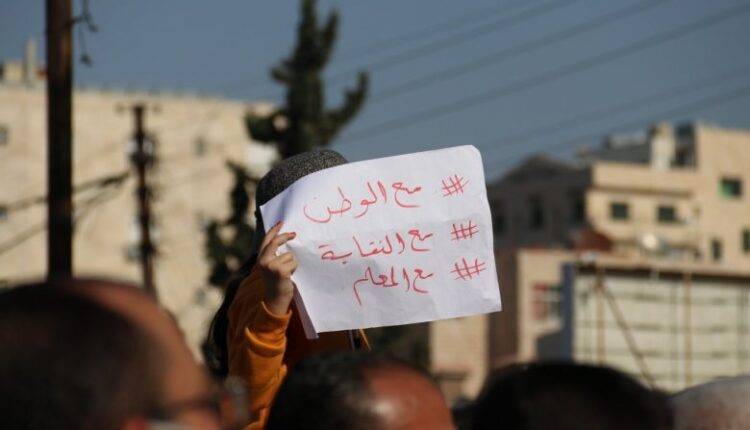 # مع الوطن
# مع النقابة
# مع المعلم